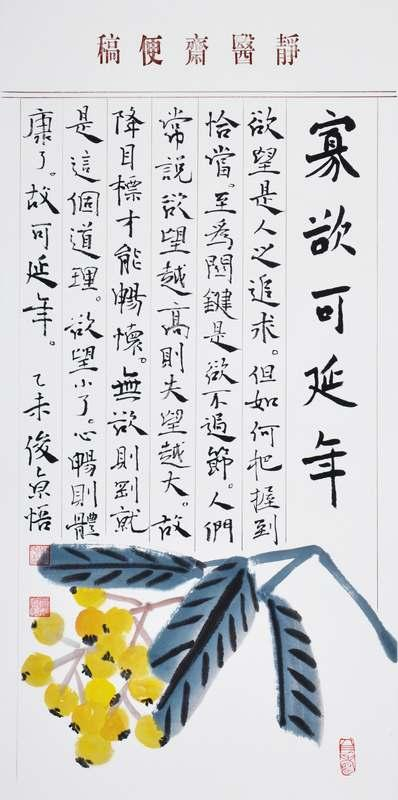 靜醫齋便稿
寡欲可延年
欲望是人之追求。但如何把握到
恰當。至爲關鍵是欲不過節。人們
常說欲望越高則失望越大。故
降目標才能暢懷。無欲則剛就
是這個道理。欲望小了。心暢則體
康了。故可延年。乙未俊 悟